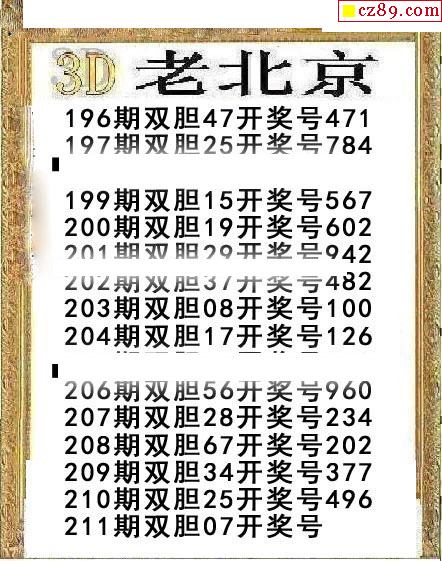 cz89.com
3D 老北京
196期双胆47开奖号471
197期双胆25开奖号784
199期双胆15开奖号567
200期双胆19开奖号602
201期双胆29开奖号942
202期双胆37开奖号482
203期双胆08开奖号100
204期双胆17开奖号126
206期双胆56开奖号960
207期双胆28开奖号234
208期双胆67开奖号202
209期双胆34开奖号377
210期双胆25开奖号496
211期双胆07开奖号